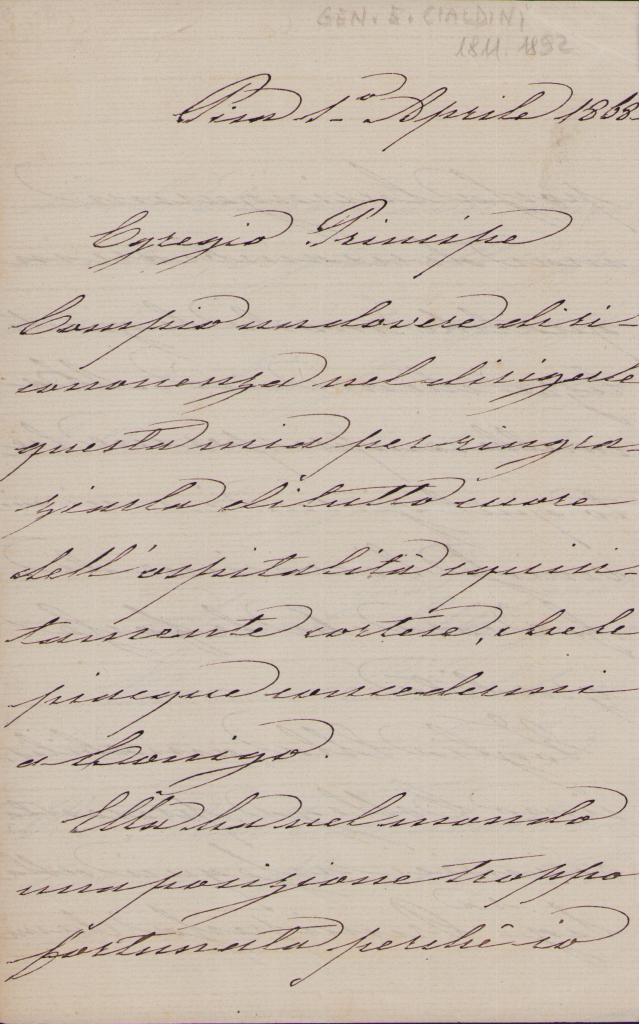 GEN. E. CIALDINI
1811. 1892
Pisa 1.º Aprile 1868
Egregio Principe
Compio un dovere di ri-
conoscenza nel dirigerle
questa mia per ringra-
ziarla di tutto cuore
dell'ospitalità squisi-
tamente cortese, che le
piacque concedermi
a Lonigo.
Ella ha nel mondo
una posizione troppo
fortunata perchè io